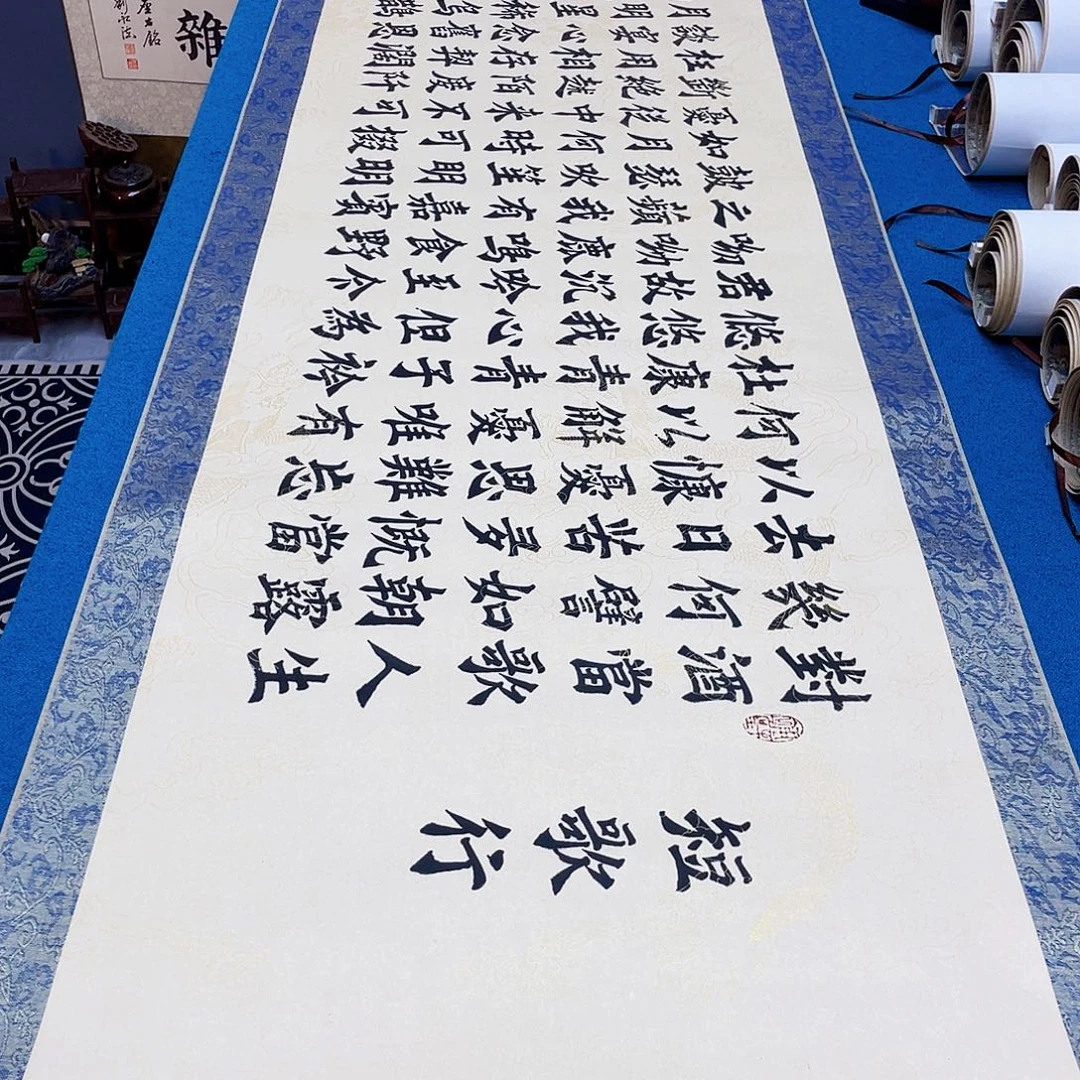 短歌行
對酒當歌人生
幾何譬如朝露
去日苦多慨當
以慷憂思難忘
何以解憂唯有
杜康青青子衿
悠悠我心但為
君故沉吟至今
呦呦鹿鳴食野
之蘋我有嘉賓
鼓瑟吹笙明明
如月何時可掇
憂從中来不可
斷絕越陌度阡
枉用相存契闊
談宴心念舊恩
月明星稀烏鵲
雜